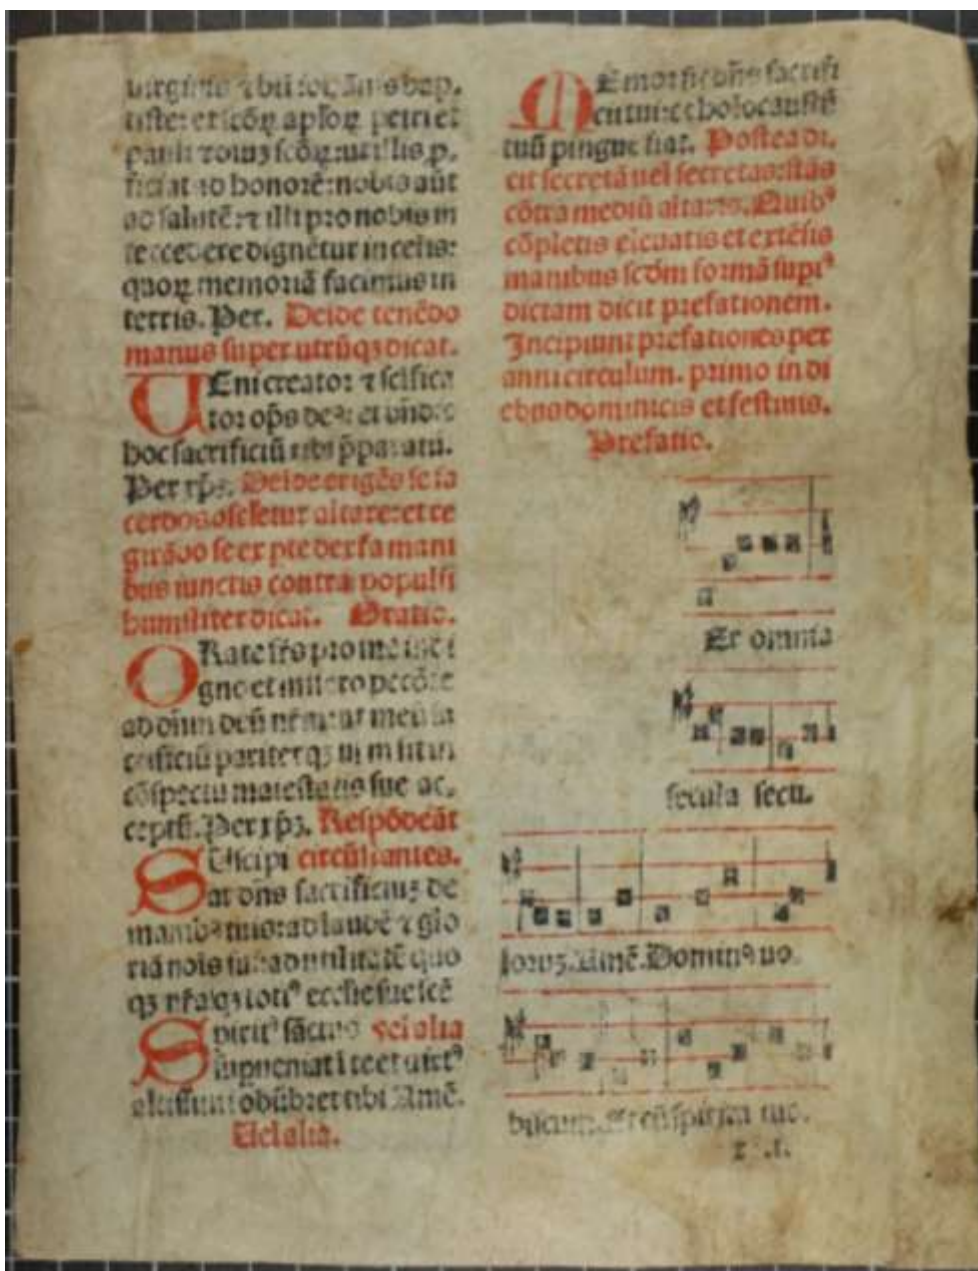 virginis ⁊ bti iohānis bap.
tiste: et scōꝝ aplōꝝ petri et
pauli ⁊ oīuʒ scōꝝ: ut illis ꝓ.
ficiat ad honorē: nobis aūt
ad salutē: ⁊ illi pro nobis in
tercedere dignētur in celis:
quoꝝ memoriā facimus in
terris. Per. Deīde tenēdo
manus super utrūqʒ dicat.
VEni creator ⁊ scīfica
tor op̄s deꝰ: et bn̄dic
hoc sacrificiū tibi p̄paratū.
Per xp̄ʒ. Deīde erigēs se sa
cerdos osculetur altare: et re
girādo se ex pte dextra mani
bus iunctis contra populū
humiliter dicat. Oratio.
ORate frēs pro me
gno et misero peccōre
ad dn̄m deū nrm: ut meū sa
crificiū pariterqʒ in
cōspectu maiestatis sue ac.
ceptū. Per xp̄ʒ. Respōdeāt
SUscipi circūstantes.
at dn̄s sacrificiuʒ de
manibꝰ tuis: ad laudē ⁊ glo
riā nois sui: ad utilitatē quo
qʒ nrāqʒ totiꝰ ecclesie sue scē
SPiritꝰ sanctus Vel alia
supueniat ī te et uirtꝰ
altissimi obūbret tibi Amē.
Vel alia.
MEmor sit dn̄s sacrifi
cii tui: et holocaustū
tuū pingue fiat. Postea di.
cit secretā uel secretas: stās
cōtra mediū altaris. Quibꝰ
cōpletis eleuatis et extēsis
manibus scdm formā supꝰ
dictam dicit prefationem.
Incipiunt prefationes per
anni circulum. primo in di
ebus dominicis et festiuis.
Prefatio.
Er omnia
secula secu.
loruʒ. Amē. Dominꝰ uo.
biscum. Et cū spiritu tuo.